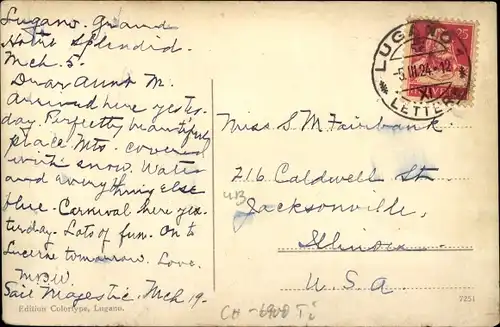 Lugano. Grand
Hotel Splendid.
Mch. 5.
Dear Aunt M.
Arrived here yester-
day. Perfectly beautiful
place Mts. covered
with snow. Water
and everything else
blue. Carnival here yes-
terday. Lots of fun. On to
Lucerne tomorrow. Love.
M.B.W.
Sail Majestic, Mch 19.
Edition Colortype, Lugano.
LUGANO 1
-5.III.24.-12
XI
LETTERE
25
Miss S. M. Fairbank
716 Caldwell St.
Jacksonville,
Illinois
U. S. A.
CH-6900 Ti
7251